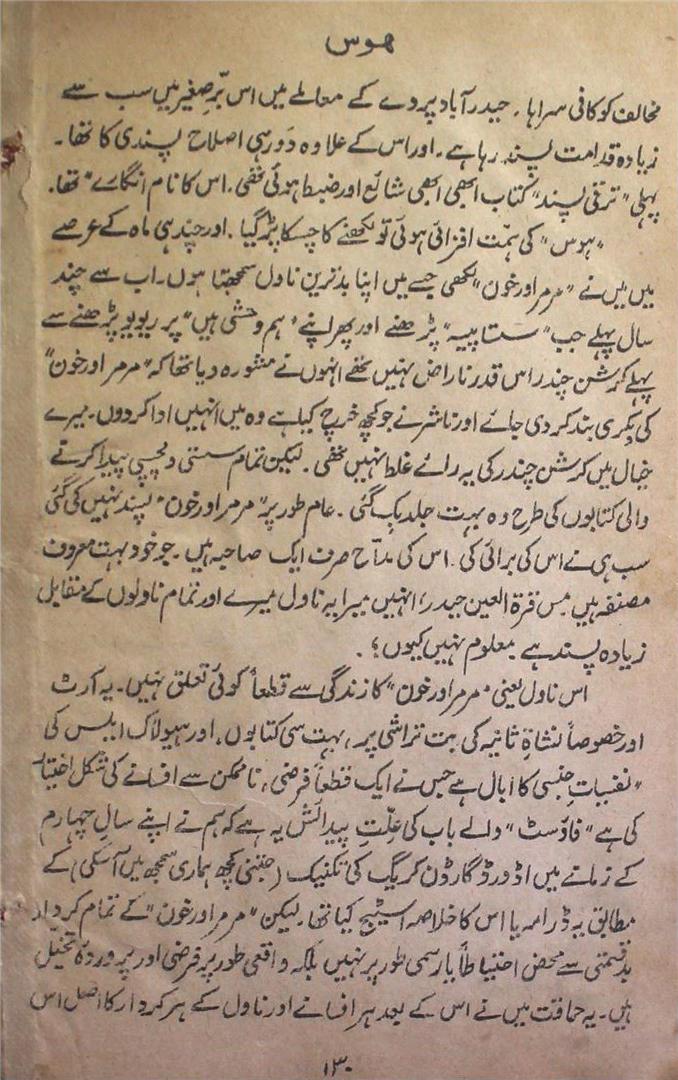 ہوس
مخالف کو کافی سراہا۔ حیدرآباد پردے کے معاملے میں اس برِّصغیر میں سب سے
زیادہ قدامت پسند رہا ہے۔ اور اس کے علاوہ دَور ہی اصلاح پسندی کا تھا۔
پہلی "ترقی پسند" کتاب ابھی ابھی شائع اور ضبط ہوئی تھی۔ اس کا نام انگارے" تھا۔
"ہوس" کی ہمّت افزائی ہوئی تو لکھنے کا چسکا پڑ گیا۔ اور چند ہی ماہ کے عرصے
میں میں نے "مرمر اور خون" لکھی جسے میں اپنا بدترین ناول سمجھتا ہوں۔ اب سے چند
سال پہلے جب "ستا پیسہ" پڑھنے اور پھر اپنے "ہم وحشی ہیں" پر ریویو پڑھنے سے
پہلے کرشن چندر اس قدر ناراض نہیں تھے انہوں نے مشورہ دیا تھا کہ "مرمر اور خون"
کی بکری بند کردی جائے اور ناشر نے جو کچھ خرچ کیا ہے وہ میں انہیں ادا کردوں۔ میرے
خیال میں کرشن چندر کی یہ رائے غلط نہیں تھی۔ لیکن تمام سستی دلچسپی پیدا کرنے
والی کتابوں کی طرح وہ بہت جلد بِک گئی۔ عام طور پر "مرمر اور خون" پسند نہیں کی گئی
سب ہی نے اس کی برائی کی۔ اس کی مدّاح صرف ایک صاحبہ ہیں۔ جو خود بہت معروف
مصنفہ ہیں مِس قرۃ العین حیدر؛ انہیں میرا یہ ناول میرے اور تمام ناولوں کے مقابل
زیادہ پسند ہے۔ معلوم نہیں کیوں؟۔
اس ناول یعنی "مرمر اور خون" کا زندگی سے قطعاً کوئی تعلق نہیں۔ یہ آرٹ
اور خصوصاً نشاۃِ ثانیہ کی بت تراشی پر، بہت سی کتابوں، اور ہیولاک ایلس کی
"نفسیاتِ جنسی کا ابال ہے جس نے ایک قطعاً فرضی، ناممکن سے افسانے کی شکل اختیار
کی ہے "فاؤسٹ" والے باب کی علّتِ پیدائش یہ ہے کہ ہم نے اپنے سالِ چہارم
کے زمانے میں اڈورڈ گارڈن کریگ کی تکنیک (جتنی کچھ ہماری سمجھ میں آسکی) کے
مطابق یہ ڈرامہ یا اس کا خلاصہ اسٹیج کیا تھا۔ لیکن "مرمر اور خون" کے تمام کردار
بدقسمتی سے محض احتیاطاً یا رسمی طور پر نہیں بلکہ واقعی طور پر فرضی اور پروردۂ تخیّل
ہیں۔ یہ حماقت میں نے اس کے بعد ہر افسانے اور ناول کے ہر کردار کا اصل اس
۱۳۰